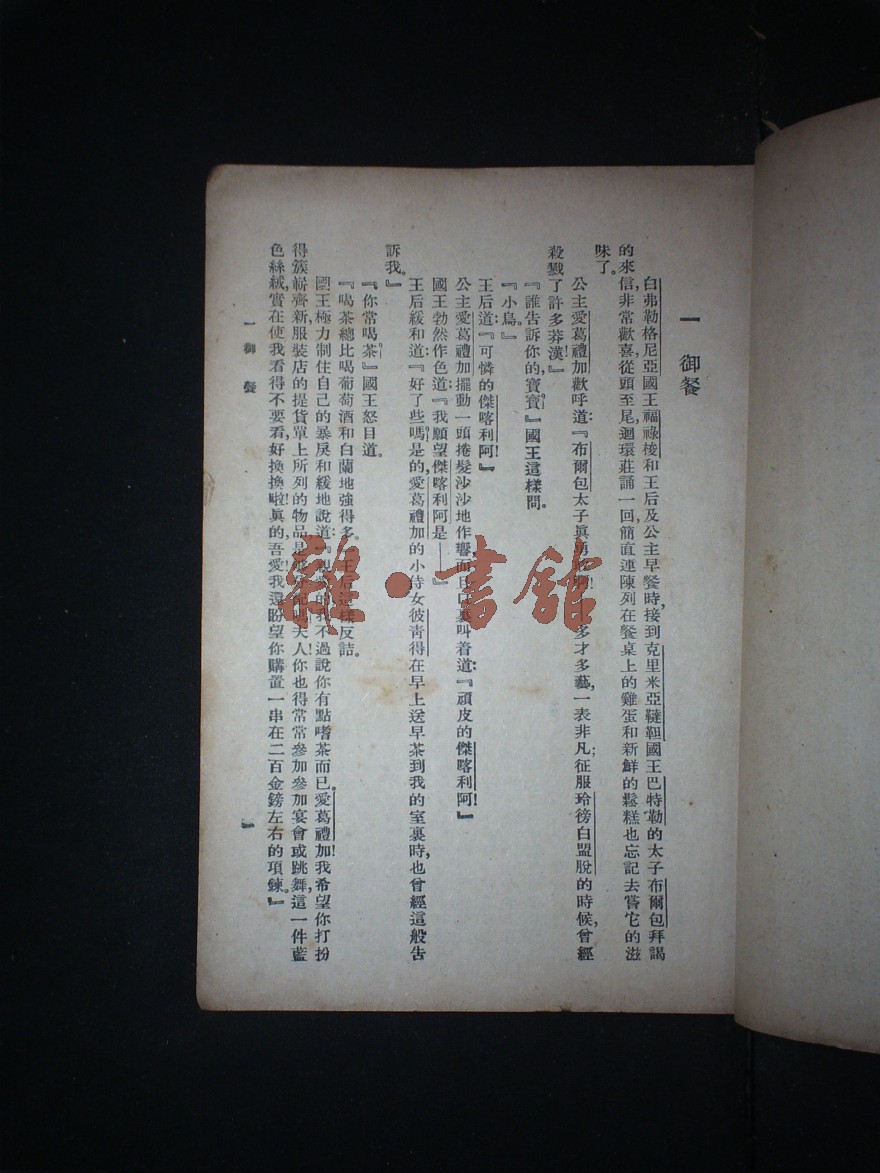 一　御餐
白弗勒格尼亞國王福祿梭和王后及公主早餐時,接到克里米亞韃靼國王巴特勒的太子布爾包拜謁
的來信,非常歡喜,從頭至尾,迴環莊誦一回,簡直連陳列在餐桌上的雞蛋和新鮮的鬆糕也忘記去嘗它的滋
味了。
公主愛葛禮加歡呼道:『布爾包太子眞勇 多才多藝,一表非凡;征服玲徬白盟脫的時候,曾經
殺戮了許多莽漢!』
『誰告訴你的,寶寶?』國王這樣問。
『小鳥。』
王后道:『可憐的傑喀利阿!』
公主愛葛禮加擺動一頭捲髮,沙沙地作響,而且口裏叫着道:『頑皮的傑喀利阿!』
國王勃然作色道:『我願望傑喀利阿是——』
王后緩和道:『好了些嗎?是的,愛葛禮加的小侍女彼靑得在早上送早茶到我的室裏時,也曾經這般告
訴我。』
『你常喝茶?』國王怒目道。
『喝茶總比喝葡萄酒和白蘭地強得多。』王后這樣反詰。
國王極力制住自己的暴戾,和緩地說道:『親愛的,我不過說你有點嗜茶而已。愛葛禮加!我希望你打扮
得簇嶄齊新,服裝店的提貨單上所列的物品是 配嗎?夫人!你也得常常參加參加宴會或跳舞,這一件藍
色絲絨,實在使我看得不要看,好換換啦!眞的,吾愛,我還盼望你購置一串在二百金鎊左右的項鍊。』
一　御　餐
一
雜·書館